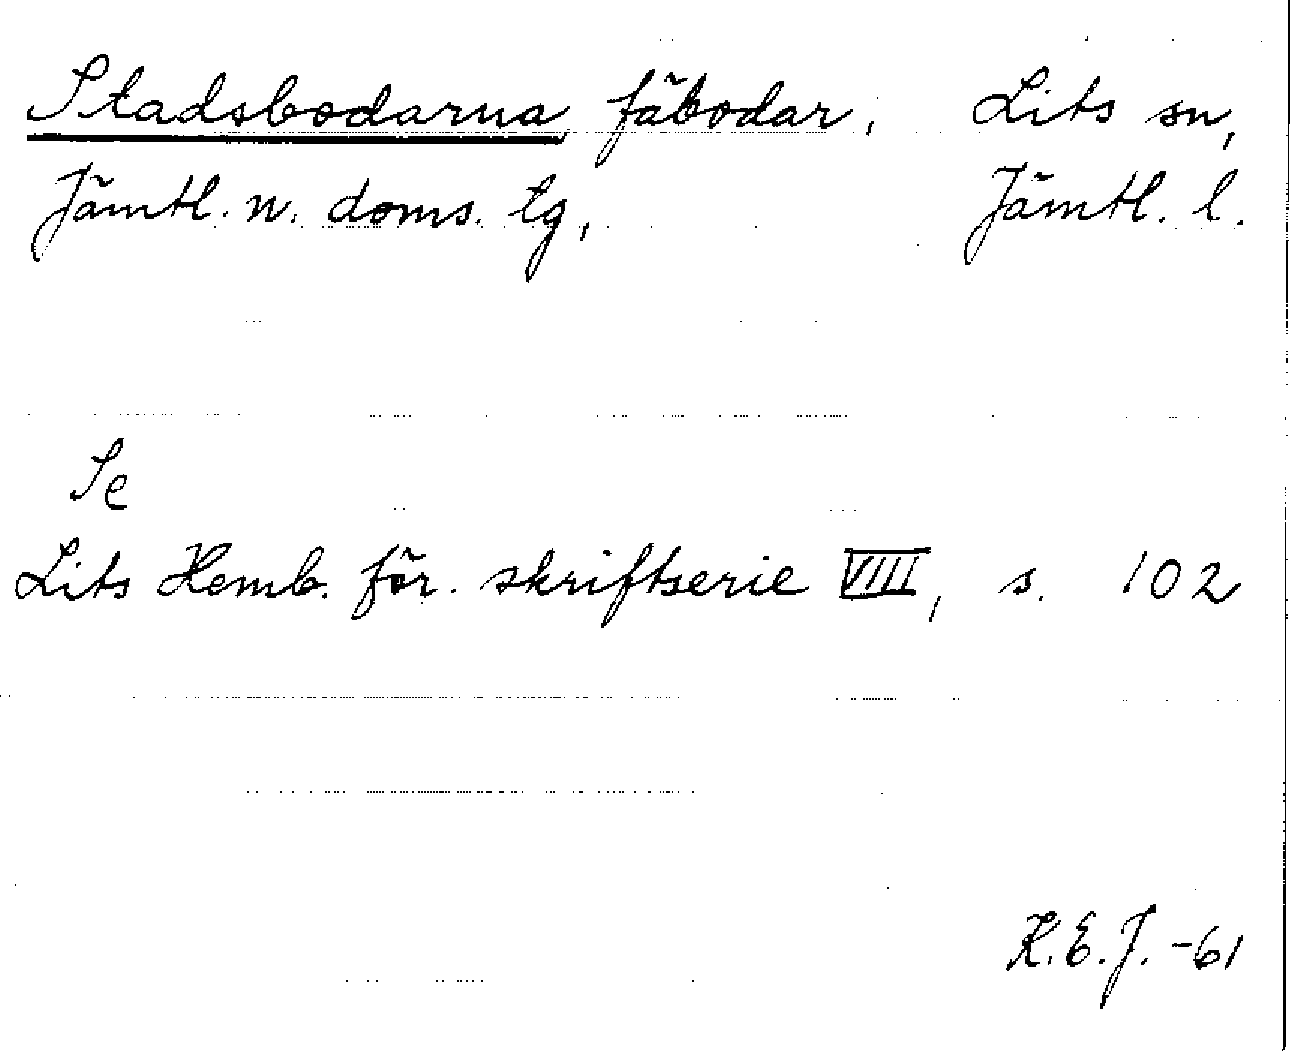 Stadsbodarna fäbodar, Lits sn,
Jämtl. n. doms. tg, Jämtl. l.
Se
Lits Hemb. för. skriftserie VIII, s. 102
K.E.J. -61